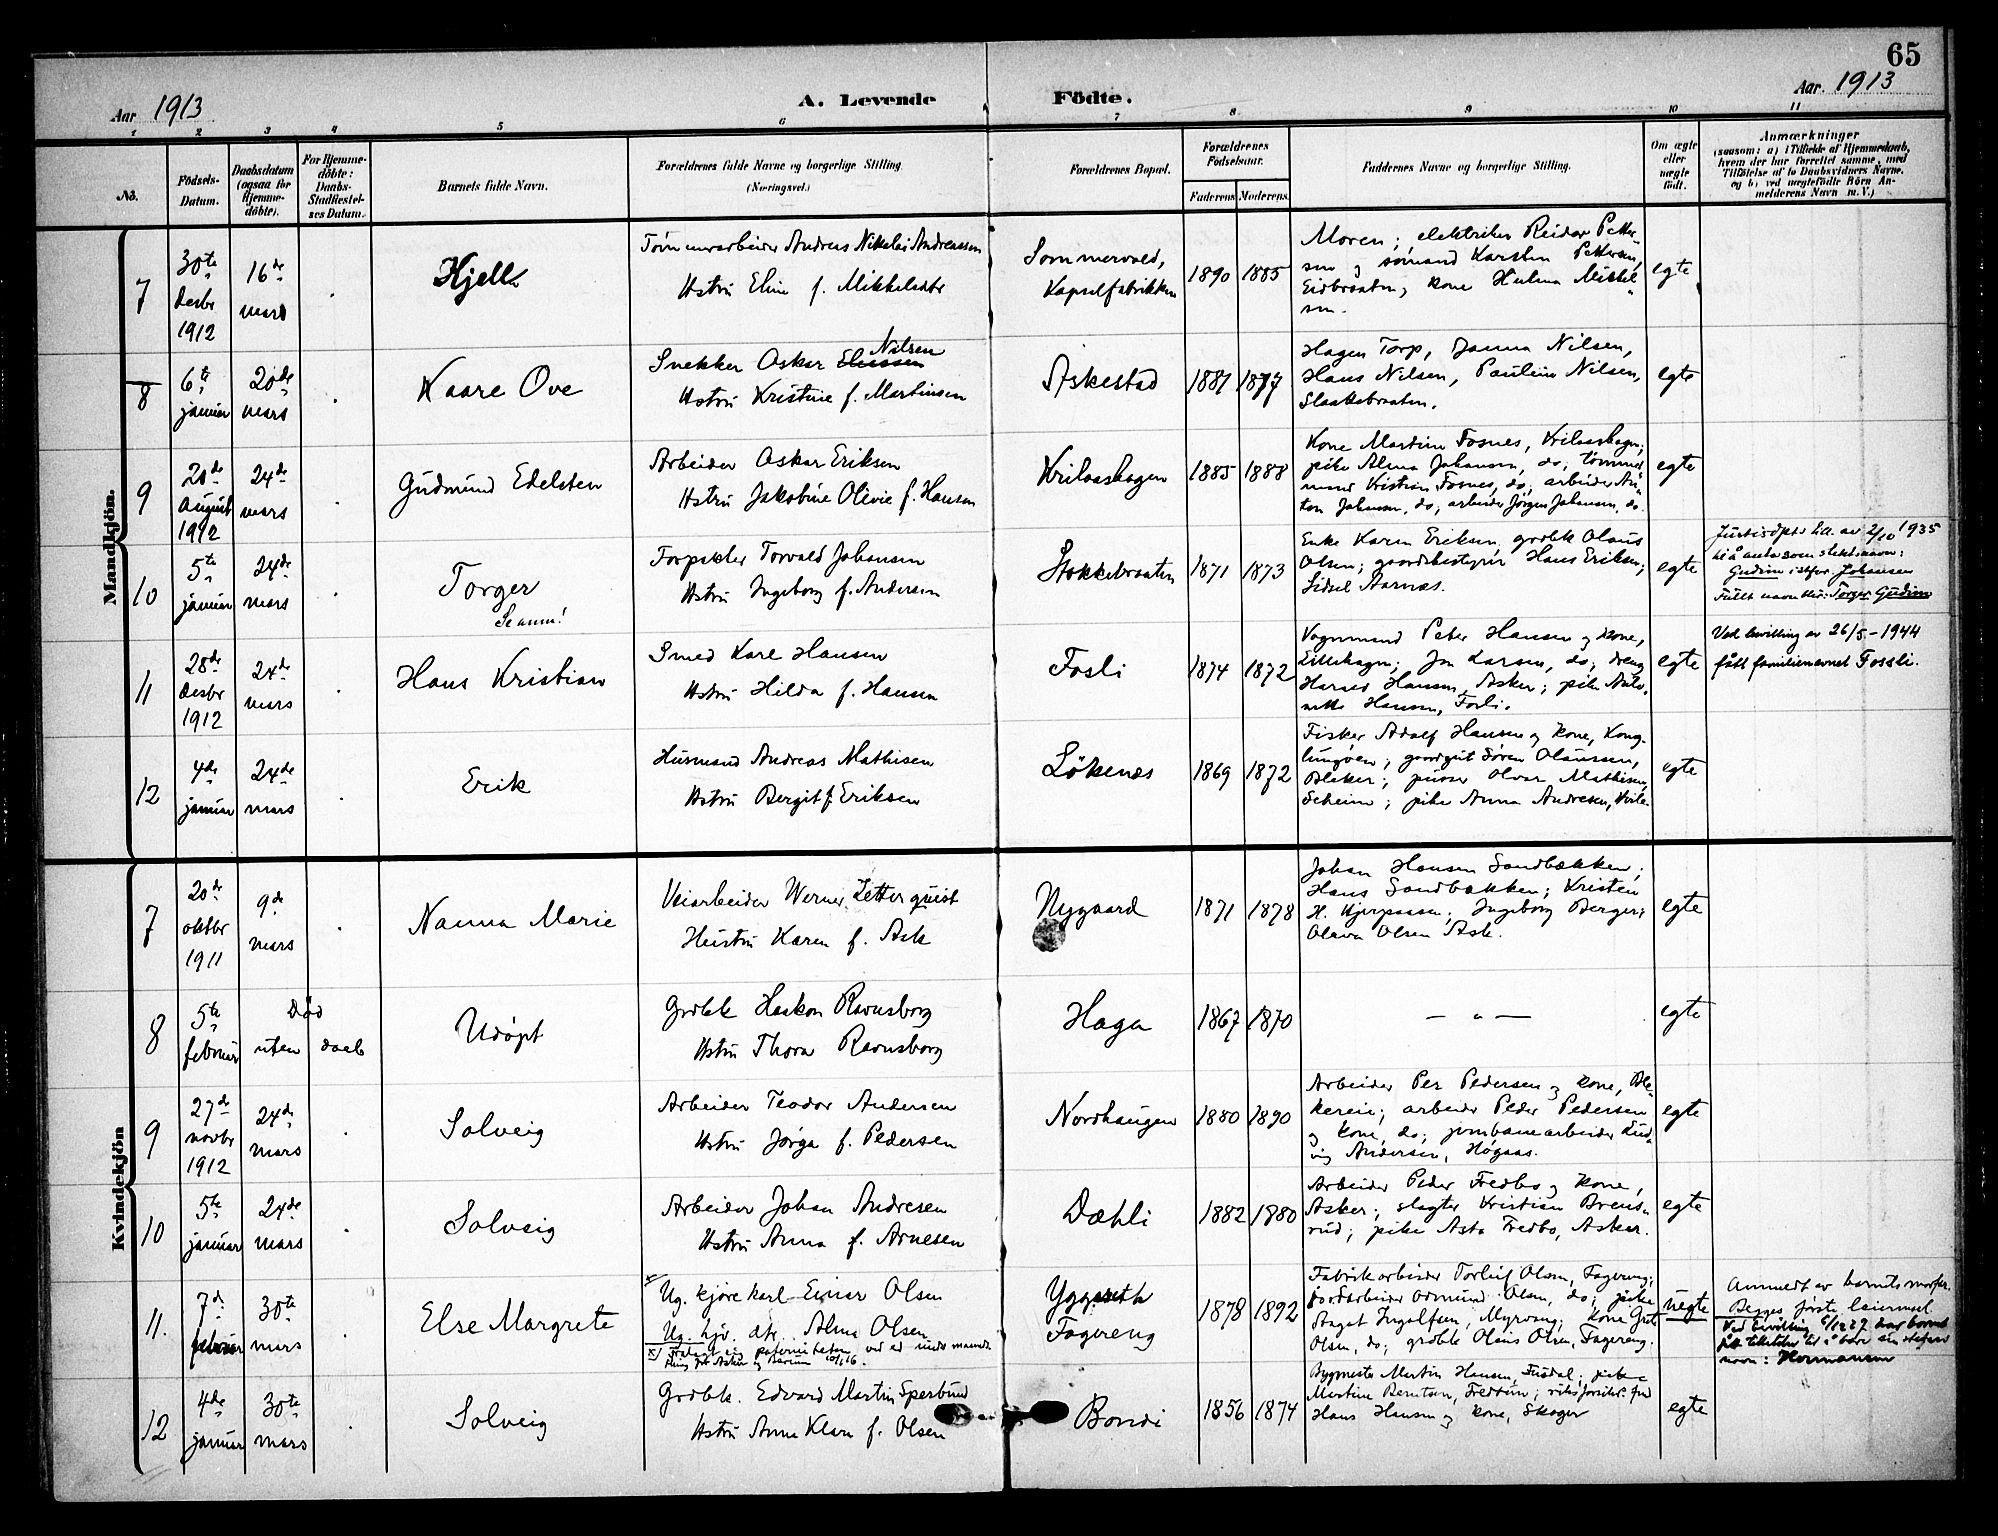 65
Aar 1913
A. Levende Födte.
Aar. 1913
1 2 3 4 5 6 7 8 9 10 11
No.
Födsels-
Datum.
Daabsdatum
(ogsaa for
Hjemme-
döbte).
For Hjemme-
döbte:
Daabs-
Stadfæstel-
ses Datum.
Barnets fulde Navn.
Forældrenes fulde Navne og borgerlige Stilling
(Næringsvei.)
Forældrenes Bopæl.
Forældrenes
Födselsaar.
Faderens Moderens.
Faddernes Navne og borgerlige Stilling.
Om ægte
eller
uægte
födt.
Anmærkninger
(saasom: a) i Tilfælde af Hjemmedaab,
hvem der har forrettet samme, med
Tilföielse af to Daabsvidners Navne,
og b) ved uægtefödte Börn An-
melderens Navn m. V.)
Mandkjön.
7
30te
desbr
1912
16de
mars
Kjell
Andreas Nikolai Andreassen
Hstru Eline f. Mikkelsdtr
Sommervold,
Kapselfabrikken
1890 1885
Moren; elektriker Reidar Petter-
sen og sömand Karsten Pettersen,
Eidbraaten; kone Mikkel-
sen.
egte
8
6te
januar
20de
mars
Kaare Ove
Nilsen
Snekker Oskar
Hstru Kristine f. Martinsen
Askestad
1881 1877
Hagen Torp, Janna Nilsen,
Hans Nilsen, Pauline Nilsen,
Slaatebraaten.
egte
9
20de
august
1912
24de
mars
Gudmund Edelsten
Arbeider Oskar Eriksen
Hstru Jakobine Olivie f. Hansen
Hvilaashagen
1885 1888
Kone Martine Fosnes,
pike Alma Johansen, do; tömmer-
mand Kristian Fosnes, do; arbeider An-
ton Johansen, do; arbeider Jörgen Johansen, do.
egte
10
5te
januar
24de
mars
Torger
Se anm!
Torpekter Torvald Johansen
Hstru Ingeborg f. Andersen
Stokkebraaten
1871 1873
Enke Karen Eriksen, grdbk Olaus
Olsen; gaardsbestyrer Hans Eriksen;
Sidsel Aarnæs.
egte
av 2/10 1935
til å anta som slektsnavn:
Gudim istfor. Johansen
Fullt navn blir: Torger Gudim
11
28de
desbr
1912
24de
mars
Hans Kristian
Smed Karl Hansen
Hstru Hilda f. Hansen
Fosli
1874 1872
Vognmand Peter Hansen og kone,
Jon Karsen, do; dreng
Harald Hansen, Asker; pike Anto-
nette Hansen, Fosli.
egte
Ved bevilling av 26/5-1944
fått familienavnet Fossli.
12
4de
januar
24de
mars
Erik
Husmand Andreas Mathisen
Hstru Bergit f. Eriksen
Lökenes
1869 1872
Fisker Adolf Hansen og kone, Kong-
lungöen; gaardgut Sören Olaussen,
Bleker; Olvar Mathisen,
pike Anna Andresen,
egte
Kvindekjön
7
20de
oktbr
1911
9de
mars
Nanna Marie
Veiarbeider Werner Zetterquist
Hustru Karen f. Ask
Nygaard
1871 1878
Johan Hansen Sandbækken;
Hans Sandbækken; Kristen
H. Ingeborg Berger;
Olava Olsen Ask.
egte
8
5te
februar
Död
uten daab
Udöpt
Grdbk Haakon Ravnsborg
Hstru Thora Ravnsborg
Haga
1867 1870
— „ —
egte
9
27de
novbr
1912
24de
mars
Solveig
Arbeider Teodor Andersen
Hstru Jörga f. Pedersen
Nordhaugen
1880 1890
Arbeider Per Pedersen og kone, Ble-
kereie; arbeider Peder Pedersen
og kone, do; jernbanearbeider Lud-
vig Andersen, Högaas.
egte
10
5te
januar
24de
mars
Solveig
Arbeider Johan Andresen
Hstru Anna f. Arnesen
Dæhli
1882 1880
Arbeider Peder Fredbo og kone,
Asker; slagter Kristian Brens-
rud; pike Asta Fredbo, Asker.
egte
11.
7de
februar
30te
mars
Else Margrete
x
Ug. kjörekarl Einar Olsen
Ug. hjv. dtr. Alma Olsen
x) paterniteten ved
Asker og Bærum
Yggeseth
Fagereng
1878 1892
Fabrikarbeider Torleif Olsen, Fagereng;
jordarbeider Odmund Olsen, do; pike
Aagot Ingolfsen, Myrvang; kone Grete
Olsen, do; grdbk Olaus Olsen, Fagereng.
uegte
Anmeldt av barnets morfar.
Begges förste leiermaal
Ved bevilling har barnet
fått tillatelse til å bære
navn: Hermansen
12
4de
januar
30te
mars
Solveig
Grdbk. Edvard Martin Sperbund
Hstru Anna Klara f. Olsen
Bondi
1856 1874
Bygmester Martin Hansen, pike
Martine Berntsen,
Hans Hansen og kone, Skoger
egte